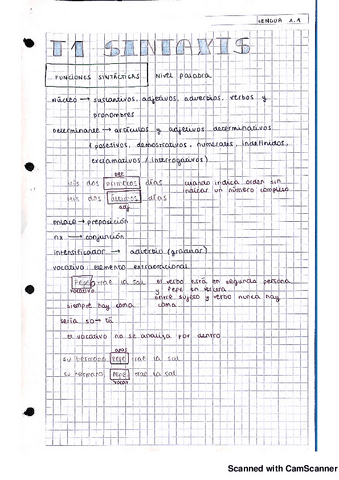 LENGUA 1.1
T1 SINTAXIS
FUNCIONES SINTÁCTICAS Nivel palabra
núcleo → sustantivos, adjetivos, adverbios, verbos y
pronombres
determinante → artículos y adjetivos determinativos
(posesivos, demostrativos, numerales, indefinidos,
exclamativos / interrogativos)
det
los dos primeros días cuando indica orden sin
indicar un número completo
los dos últimos días
adj
enlace → preposición
nx → conjunción
intensificador → adverbio (gradual)
vocativo elemento extraoracional
Pepe, trae la sal el verbo está en segunda persona
vocativo y Pepe en tercera
siempre hay coma entre sujeto y verbo nunca hay
coma
sería so → tú
el vocativo no se analiza por dentro
apos
su hermano Pepe trae la sal
su hermano, Pepe, trae la sal
vocat
Scanned with CamScanner